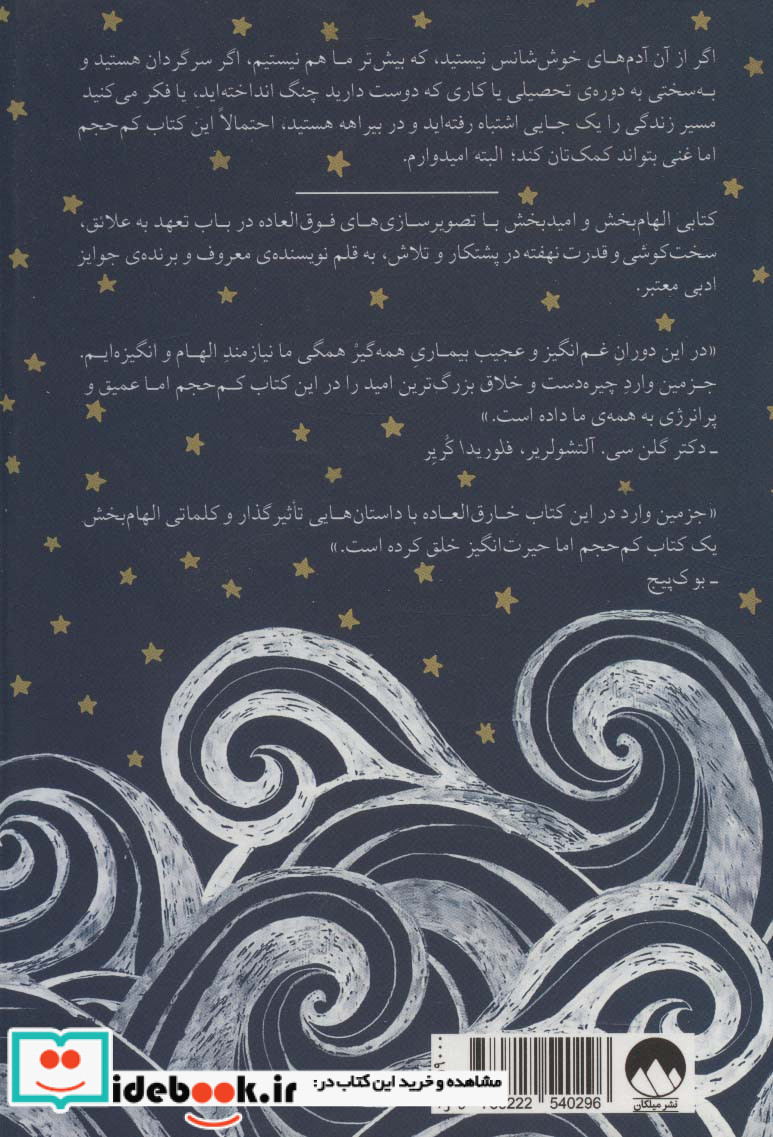 اگر از آن آدم‌های خوش‌شانس نیستید، که بیش‌تر ما هم نیستیم، اگر سرگردان هستید و
به‌سختی به دوره‌ی تحصیلی یا کاری که دوست دارید چنگ انداخته‌اید، یا فکر می‌کنید
مسیر زندگی را یک جایی اشتباه رفته‌اید و در بیراهه هستید، احتمالاً این کتاب کم‌حجم
اما غنی بتواند کمک‌تان کند؛ البته امیدوارم.
کتابی الهام‌بخش و امیدبخش با تصویرسازی‌های فوق‌العاده در باب تعهد به علائق،
سخت‌کوشی و قدرت نهفته در پشتکار و تلاش، به قلم نویسنده‌ی معروف و برنده‌ی جوایز
ادبی معتبر.
«در این دورانِ غم‌انگیز و عجیب بیماریِ همه‌گیرْ همگی ما نیازمندِ الهام و انگیزه‌ایم.
جزمین واردِ چیره‌دست و خلاق بزرگ‌ترین امید را در این کتاب کم‌حجم اما عمیق و
پرانرژی به همه‌ی ما داده است.»
ـ دکتر گلن سی. آلتشولریر، فلوریدا کُریِر
«جزمین وارد در این کتاب خارق‌العاده با داستان‌هایی تأثیرگذار و کلماتی الهام‌بخش
یک کتاب کم‌حجم اما حیرت‌انگیز خلق کرده است.»
ـ بوک‌پیج
نشر میلکان
مشاهده و خرید این کتاب در:
idebook.ir
222 540296